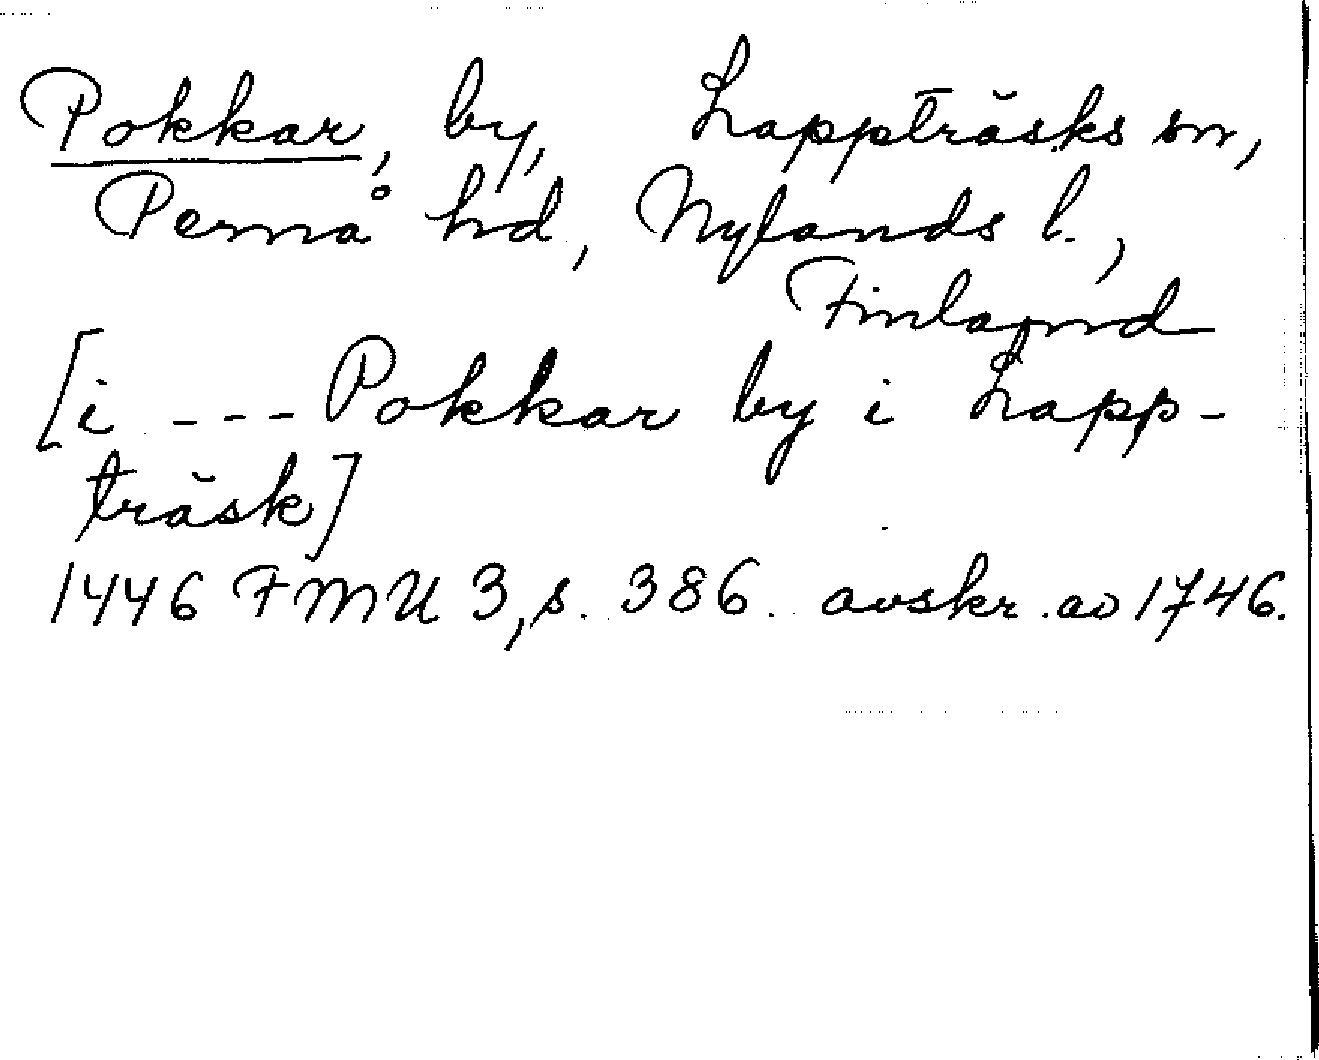 Pokkar, by, Lappträsks sn,
Pernå hd, Nylands l.,
Finland
[i --- Pokkar by i Lapp-
träsk]
1446 FMU 3, s. 386. avskr. av 1746.